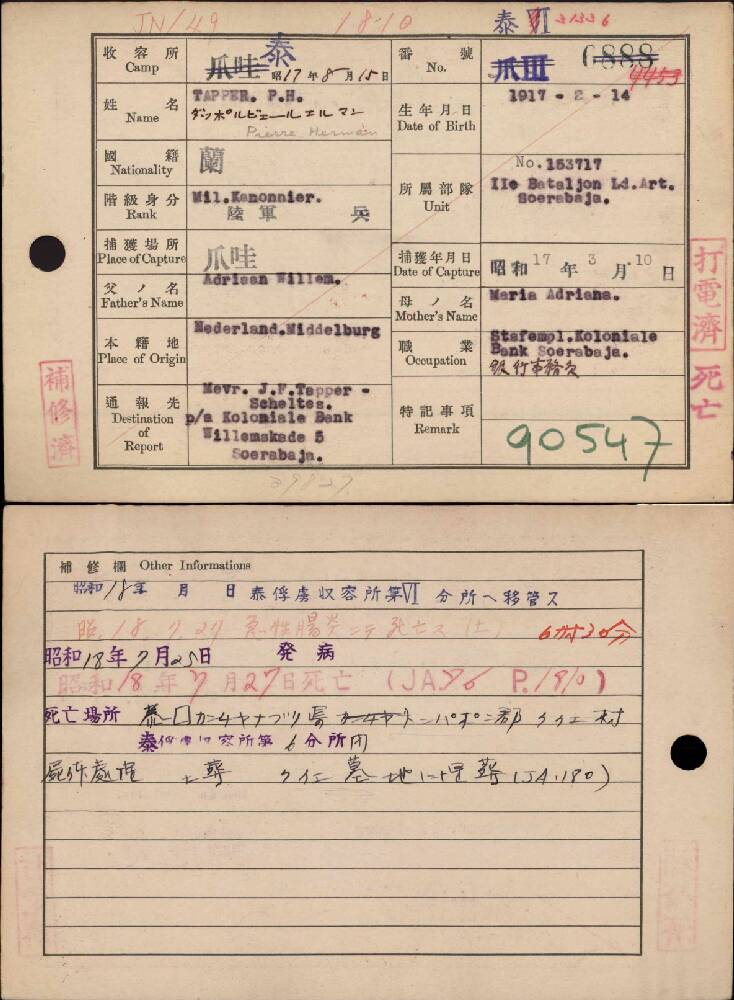 JN/49
1.8.10
泰 VI 31336
收容所 Camp 爪哇 泰 昭17年8月15日
番號 No. 爪III 6888 4453
姓名 Name TAPPER. P.H.
タッポルピエールエルマン
Pierre Herman
生年月日 Date of Birth 1917 - 2 - 14
國籍 Nationality 蘭
階級身分 Rank Mil.Kanonnier.
陸軍 兵
所屬部隊 Unit No.153717
IIe Bataljon Ld.Art.
Soerabaja.
捕獲場所 Place of Capture 爪哇
捕獲年月日 Date of Capture 昭和17年3月10日
父ノ名 Father's Name Adriaan Willem.
母ノ名 Mother's Name Maria Adriana.
本籍地 Place of Origin Nederland.Middelburg
職業 Occupation Stafempl.Koloniale
Bank Soerabaja.
銀行事務員
通報先 Destination of Report Mevr. J.F.Tapper -
Scheltes.
p/a Koloniale Bank
Willemskade 5
Soerabaja.
特記事項 Remark
90547
補修濟
打電濟
死亡
補修欄 Other Informations
昭和18年 月 日泰俘虜収容所第VI分所ヘ移管ス
昭.18.7.27 急性腸炎ニテ死亡ス(土) 6時30分
昭和18年7月25日 発病
昭和18年7月27日死亡 (JA76 P.190)
死亡場所 泰国カンチャナブリ
泰俘虜収容所第6分所内
屍体處理 土葬 クイエ墓地ニ埋葬(JA.190)